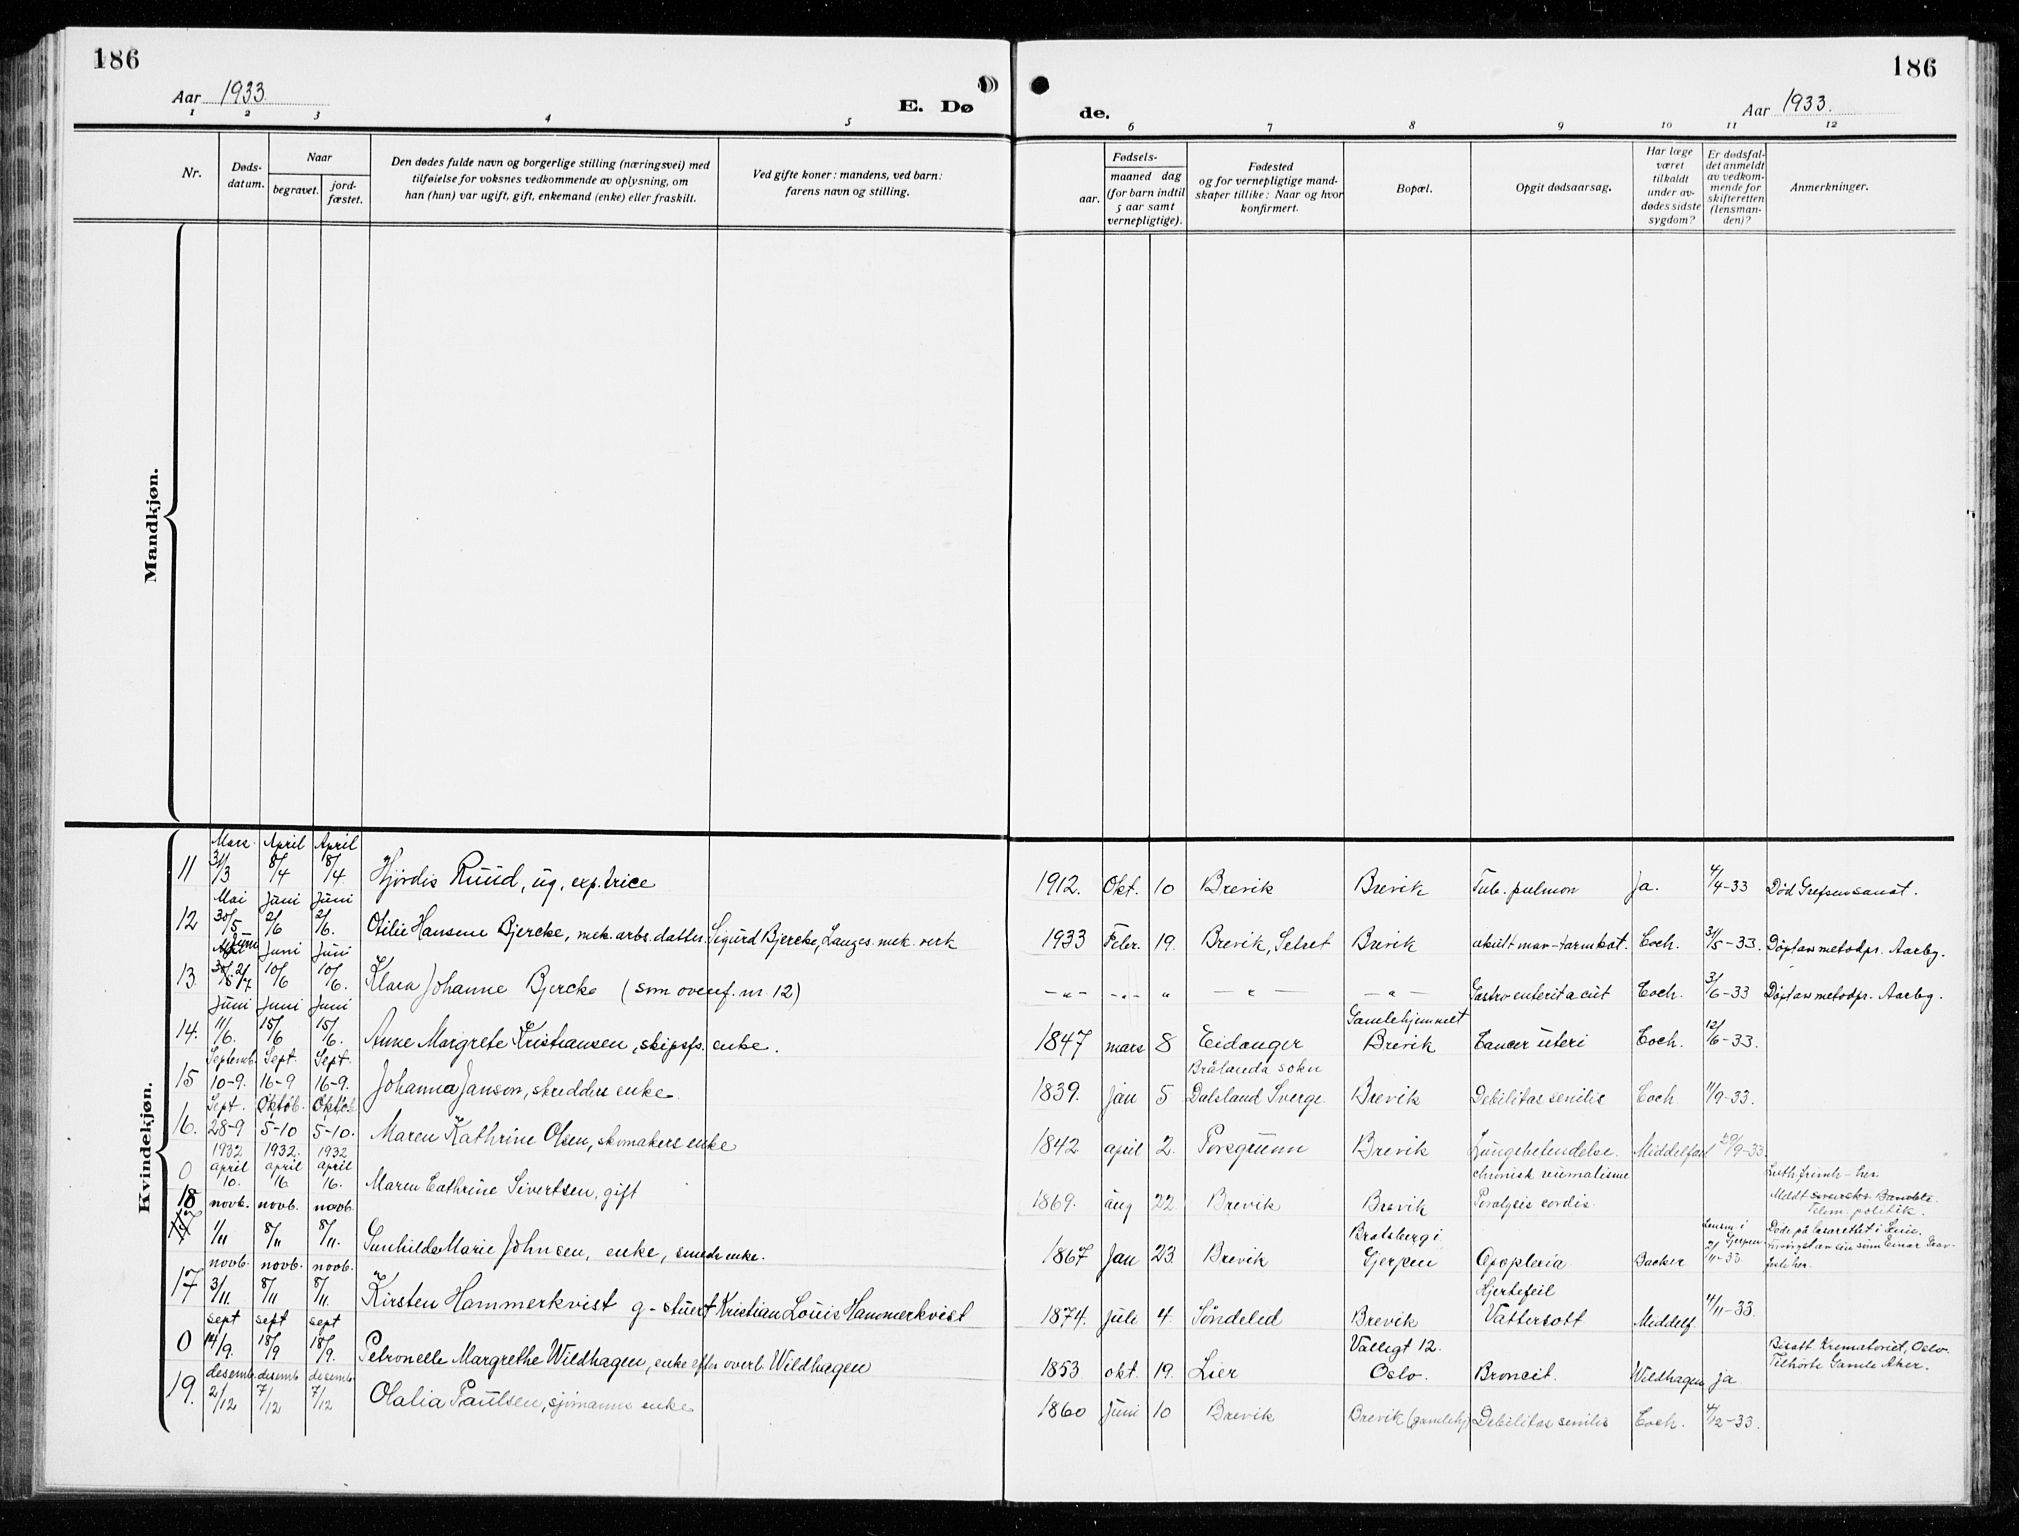 186
186
Aar 1933
E. Dø
de.
Aar 1933.
1 2 3 4 5 6 7 8 9 10 11 12
Nr.
Døds-
datum.
Naar
begravet.
jord-
fæstet.
Den dødes fulde navn og borgerlige stilling (næringsvei) med
tilføielse for voksnes vedkommende av oplysning, om
han (hun) var ugift, gift, enkemand (enke) eller fraskilt.
Ved gifte koner: mandens, ved barn:
farens navn og stilling.
Fødsels-
aar.
maaned dag
(for barn indtil
5 aar samt
vernepligtige).
Fødested
og for vernepligtige mand-
skaper tillike: Naar og hvor
konfirmert.
Bopæl.
Opgit dødsaarsag.
Har læge
været
tilkaldt
under av-
dødes sidste
sygdom?
Er dødsfal-
det anmeldt
av vedkom-
mende for
skifteretten
(lensman-
den)?
Anmerkninger.
Mandkjøn.
Kvindekjøn.
Mars April April
11 31/3 8/4 8/4 Hjördis Ruud, ug. exp.trice 1912. Okt. 10 Brevik Brevik Tub. pulmon Ja. 4/4-33 Död Grefsen sanat.
Mai Juni Juni
12 30/5 2/6 2/6. Otilie Hansene Bjercke, mek. arbs. datter. Sigurd Bjercke, Langes mek. verk 1933 Febr. 19. Brevik, Setret Brevik akutt mav-tarmkat. Coch. 31/5-33. Döpt av metodpr. Aarby.
Juni Juni Juni
13. 2/6 10/6 10/6. Klara Johanne Bjercke (som ovenf. nr. 12) -"- -"- " -"- -"- Gastroenterit acut Coch. 3/6-33 Döpt av metodpr. Aarby.
Juni Juni Juni
14. 11/6. 15/6 15/6. Anne Margrete Kristiansen, skipsfs. enke. 1847 mars 8 Eidanger Gamlehjemmet Brevik Cancer uteri Coch. 12/6-33.
Septemb. Sept. Sept.
15 10-9. 16-9 16-9. Johanna Janson, skredders enke 1839. Jan 5 Brålanda sokn Dalsland Sverge Brevik Debilitas senilis Coch 11/9-33.
Sept. Oktob. Oktob
16. 28-9 5-10 5-10. Maren Kathrine Olsen, skomakers enke 1842 april 2. Porsgrunn Brevik Lungebetendelse. Middelfar 29/9-33.
1932 1932. 1932
april april april
0 10. 16 16. Maren Cathrine Sivertsen, gift 1869. aug 22 Brevik Brevik chronisk reumatisme Paralysis cordis
novb. novb. novb.
18 1/11 8/11 8/11. Gunhilda Marie Johnsen, enke, smeds enke. 1867 Jan 23. Brevik Bratsberg i Gjerpen Apoplexia Backer Lensm. i Gjerpen 2/11-33
novb. novb. novb.
17 3/11. 8/11 8/11. Kirsten Hammerkvist g-stuert Kristian Louis Hammerkvist 1874. Juli 4. Söndeled Brevik Hjertefeil Vattersott Middelf. 4/11-33.
sept sept sept
0 14/9. 18/9 18/9. Petronelle Margrethe Wildhagen, enke efter overl. Wildhagen 1853 okt. 19. Lier Vallegt 12. Oslo. Broncit. Wildhagen ja Bisatt Krematoriet, Oslo. Tilhörte Gamle Aker.
desemb. desemb desemb
19. 2/12 7/12 7/12 Olalia Paulsen, sjömanns enke 1860 Juni 10 Brevik Brevik (gamlehj.) Debilitas senilis Coch. 4/12-33.